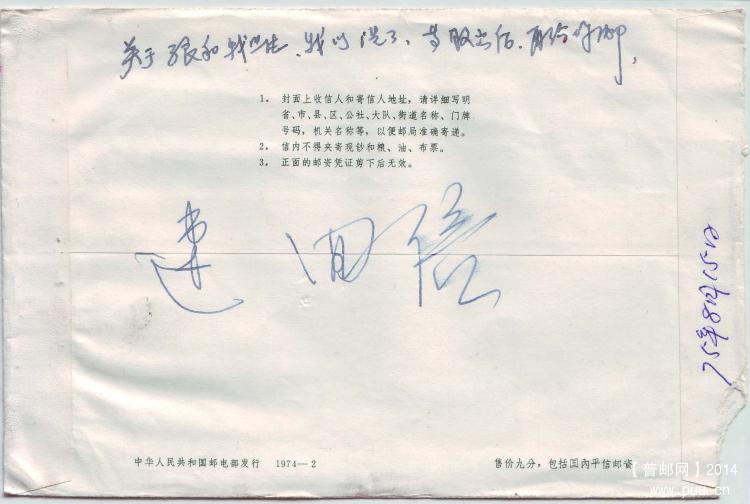 关于 和我 我们洗了、等取出后、再给你邮,
1. 封面上收信人和寄信人地址,请详细写明
省、市、县、区、公社、大队、街道名称、门牌
号码,机关名称等,以便邮局准确寄递。
2. 信内不得夹寄现钞和粮、油、布票。
3. 正面的邮资凭证剪下后无效。
速回信
75年8月15日
中华人民共和国邮电部发行 1974—2
售价九分,包括国内平信邮资
【普邮网】2014
www.puu.cn